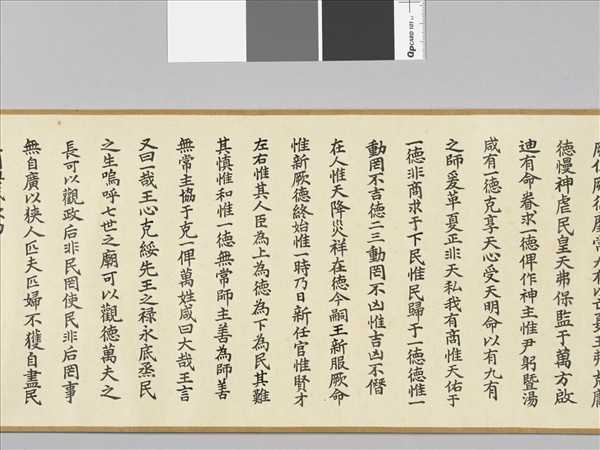 德慢神虐民皇天弗保監于萬方啟
迪有命眷求一德俾作神主惟尹躬暨湯
咸有一德克享天心受天明命以有九有
之師爰革夏正非天私我有商惟天佑于
一德非商求于下民惟民歸于一德德惟一
動罔不吉德二三動罔不凶惟吉凶不僭
在人惟天降災祥在德今嗣王新服厥命
惟新厥德終始惟一時乃日新任官惟賢才
左右惟其人臣為上為德為下為民其難
其慎惟和惟一德無常師主善為師善
無常主協于克一俾萬姓咸曰大哉王言
又曰一哉王心克綏先王之祿永底烝民
之生嗚呼七世之廟可以觀德萬夫之
長可以觀政后非民罔使民非后罔事
無自廣以狹人匹夫匹婦不獲自盡民
QpCARD 101